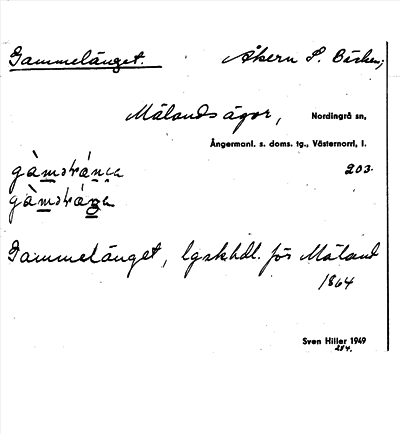 Gammelänget. Åkern S. Bäcken,
Mälands ägor, Nordingrå sn,
Ångermanl. s. doms. tg., Västernorrl, l.
203.
Gammelänget, lgskhdl. för Mäland
1864
Sven Hiller 1949